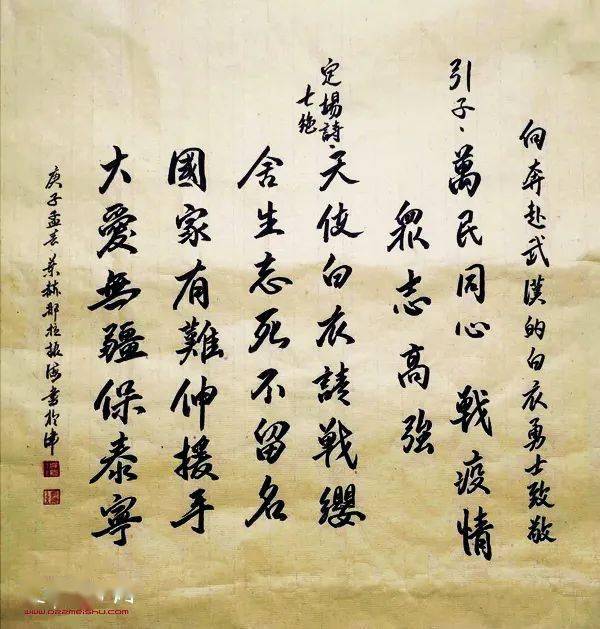 向奔赴武漢的白衣勇士致敬
引子、萬民同心 戰疫情
眾志高強
定場詩、
七絕
天使白衣請戰纓
舍生忘死不留名
國家有難伸援手
大愛無疆保泰寧
庚子孟春
書於津
www.dzzmeishu.com